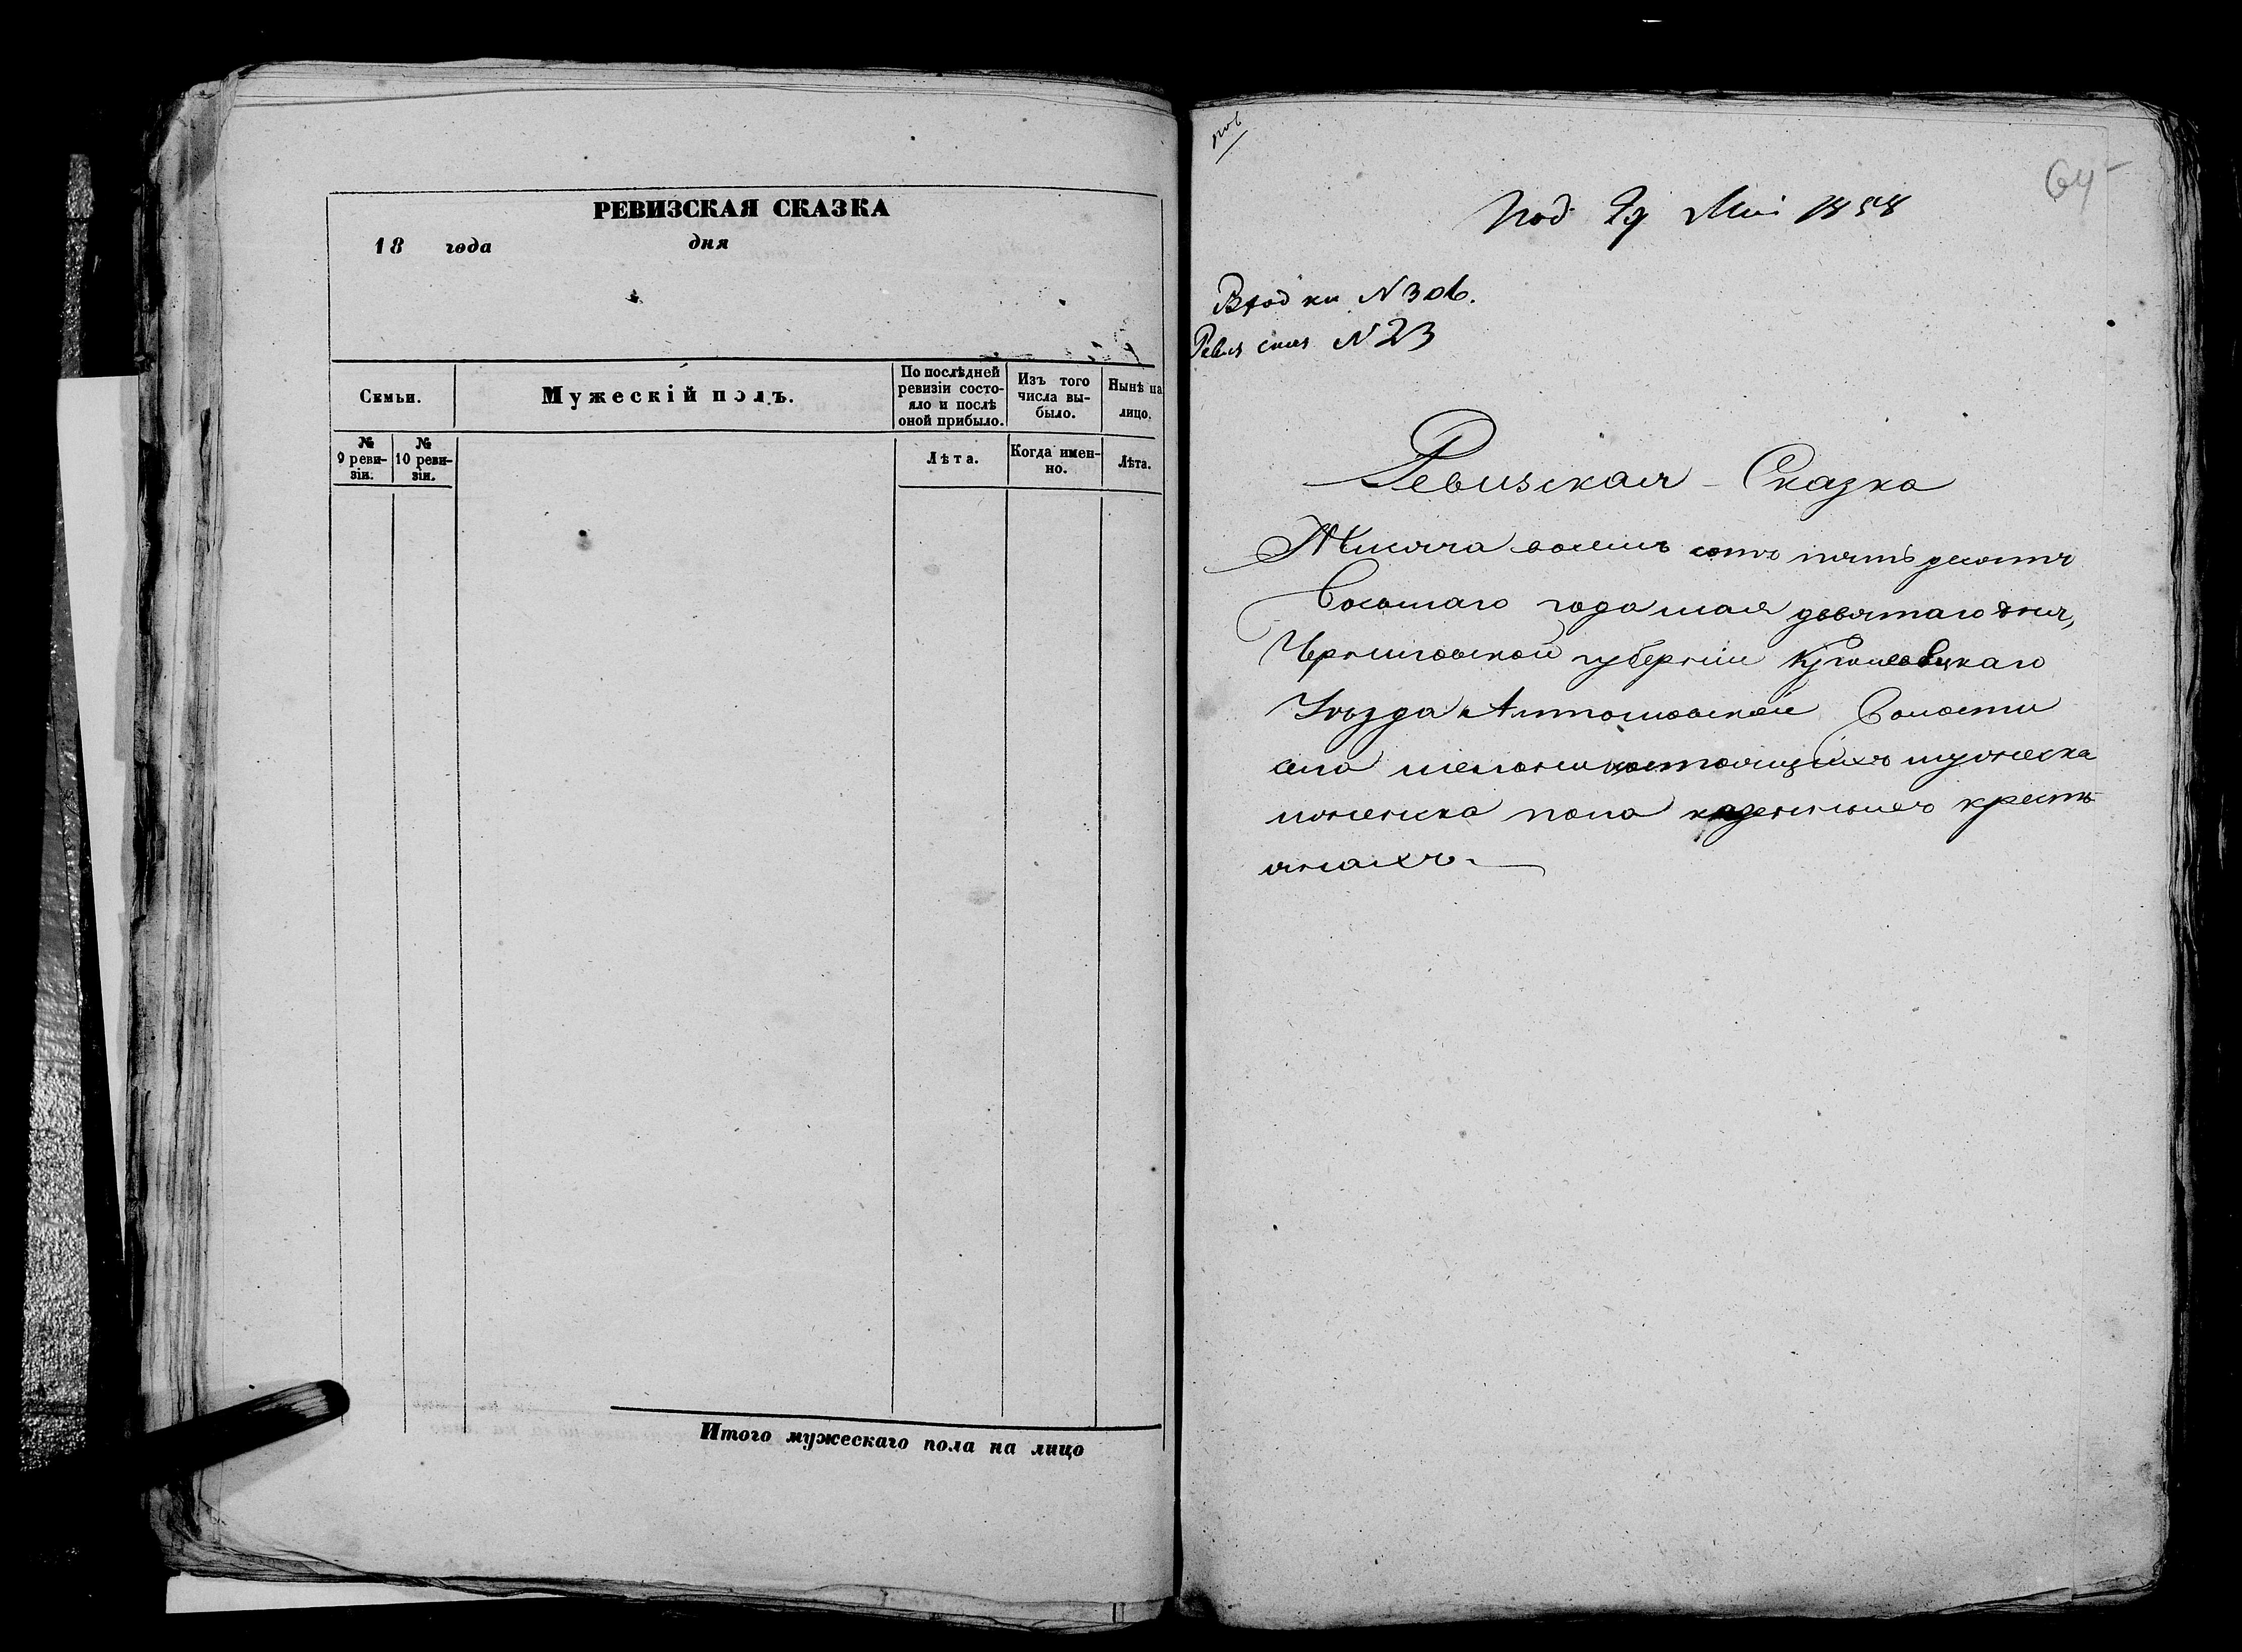 РЕВИЗСКАЯ СКАЗКА
18 года дня
Семьи.
Мужескій полъ.
По послѣдней ревизіи состояло и послѣ оной прибыло.
Изъ того числа выбыло.
Нынѣ на лицо.
№ 9 ревизіи.
№ 10 ревизіи.
Лѣта.
Когда именно.
Лѣта.
Итого мужескаго пола на лицо
64
Под 29 Маі 1858
Вход кн N 306.
Ревиз сказ N 23
Ревизская - Сказка
Тысяча восемъ сотъ пятьдесятъ
Восьмаго года мая девятаго дня,
Черниговской губерніи Кролевецкаго
Уѣзда Алтыновской Волости
села состоящихъ мужеска
иженска пола казенныхъ кресть
янахъ.